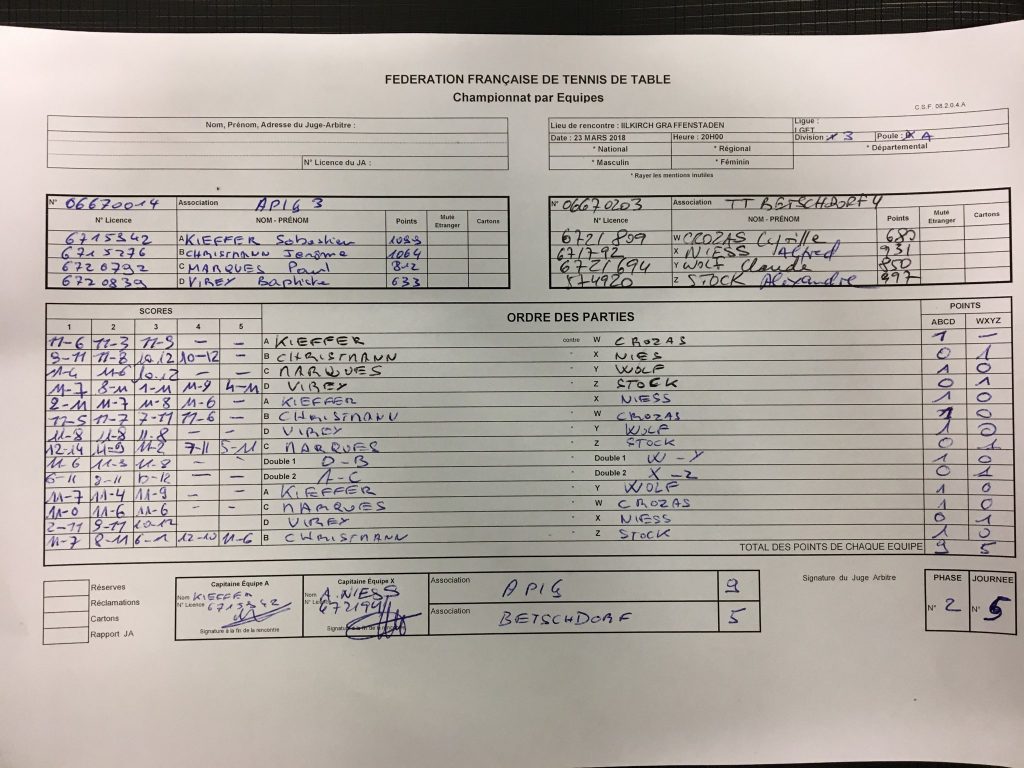 FEDERATION FRANÇAISE DE TENNIS DE TABLE
Championnat par Equipes
C.S.F. 08.2.0.4.A
Nom, Prénom, Adresse du Juge-Arbitre :
N° Licence du JA :
Lieu de rencontre : IILKIRCH GRAFFENSTADEN
Ligue :
LGET
Date : 23 MARS 2018 Heure : 20H00 Division : 3 Poule : A
* National * Régional * Départemental
* Masculin * Féminin
* Rayer les mentions inutiles
N° 06670014 Association APIG 3
N° Licence NOM - PRÉNOM Points Muté Etranger Cartons
6715342 A KIEFFER Sébastien 1083
6715276 B CHRISTMANN Jérôme 1064
6720792 C MARQUES Paul 812
6720839 D VIREY Baptiste 633
N° 06670203 Association TT BETSCHDORF 4
N° Licence NOM - PRÉNOM Points Muté Etranger Cartons
6721809 W CROZAS Cyrille 680
671792 X NIESS Alfred 931
6721694 Y WOLF Claude 850
574920 Z STOCK Alexandre 997
SCORES ORDRE DES PARTIES POINTS
1 2 3 4 5 ABCD WXYZ
11-6 11-3 11-9 – – A KIEFFER contre W CROZAS 1 –
9-11 11-8 10.12 10-12 – B CHRISTMANN " X NIES 0 1
11-4 11-6 10.12 – – C MARQUES " Y WOLF 1 0
11-7 8-11 1-11 11-9 4-11 D VIREY " Z STOCK 0 1
2-11 11-7 11-8 11-6 – A KIEFFER " X NIESS 1 0
11-7 7-11 11-6 – B CHRISTMANN " W CROZAS 1 0
11-8 11-8 11-8 – – D VIREY " Y WOLF 1 0
12-14 11-9 11-2 7-11 5-11 C MARQUES " Z STOCK 0 1
11-6 11-3 11-8 – – Double 1 D-B " Double 1 W-Y 1 0
6-11 9-11 – – Double 2 A-C " Double 2 X-Z 0 1
11-7 11-4 11-9 – – A KIEFFER " Y WOLF 1 0
11-0 11-6 11-6 – – C MARQUES " W CROZAS 1 0
2-11 9-11 10.12 D VIREY " X NIESS 0 1
11-7 8-11 12-10 11-6 B CHRISTMANN " Z STOCK 1 0
TOTAL DES POINTS DE CHAQUE EQUIPE 9 5
Réserves
Réclamations
Cartons
Rapport JA
Capitaine Équipe A
Nom KIEFFER
N° Licence 6715342
Signature à la fin de la rencontre
Capitaine Équipe X
Nom A. NIESS
Association APIG 9
Association BETSCHDORF 5
Signature du Juge Arbitre
PHASE JOURNEE
N° 2 N° 5